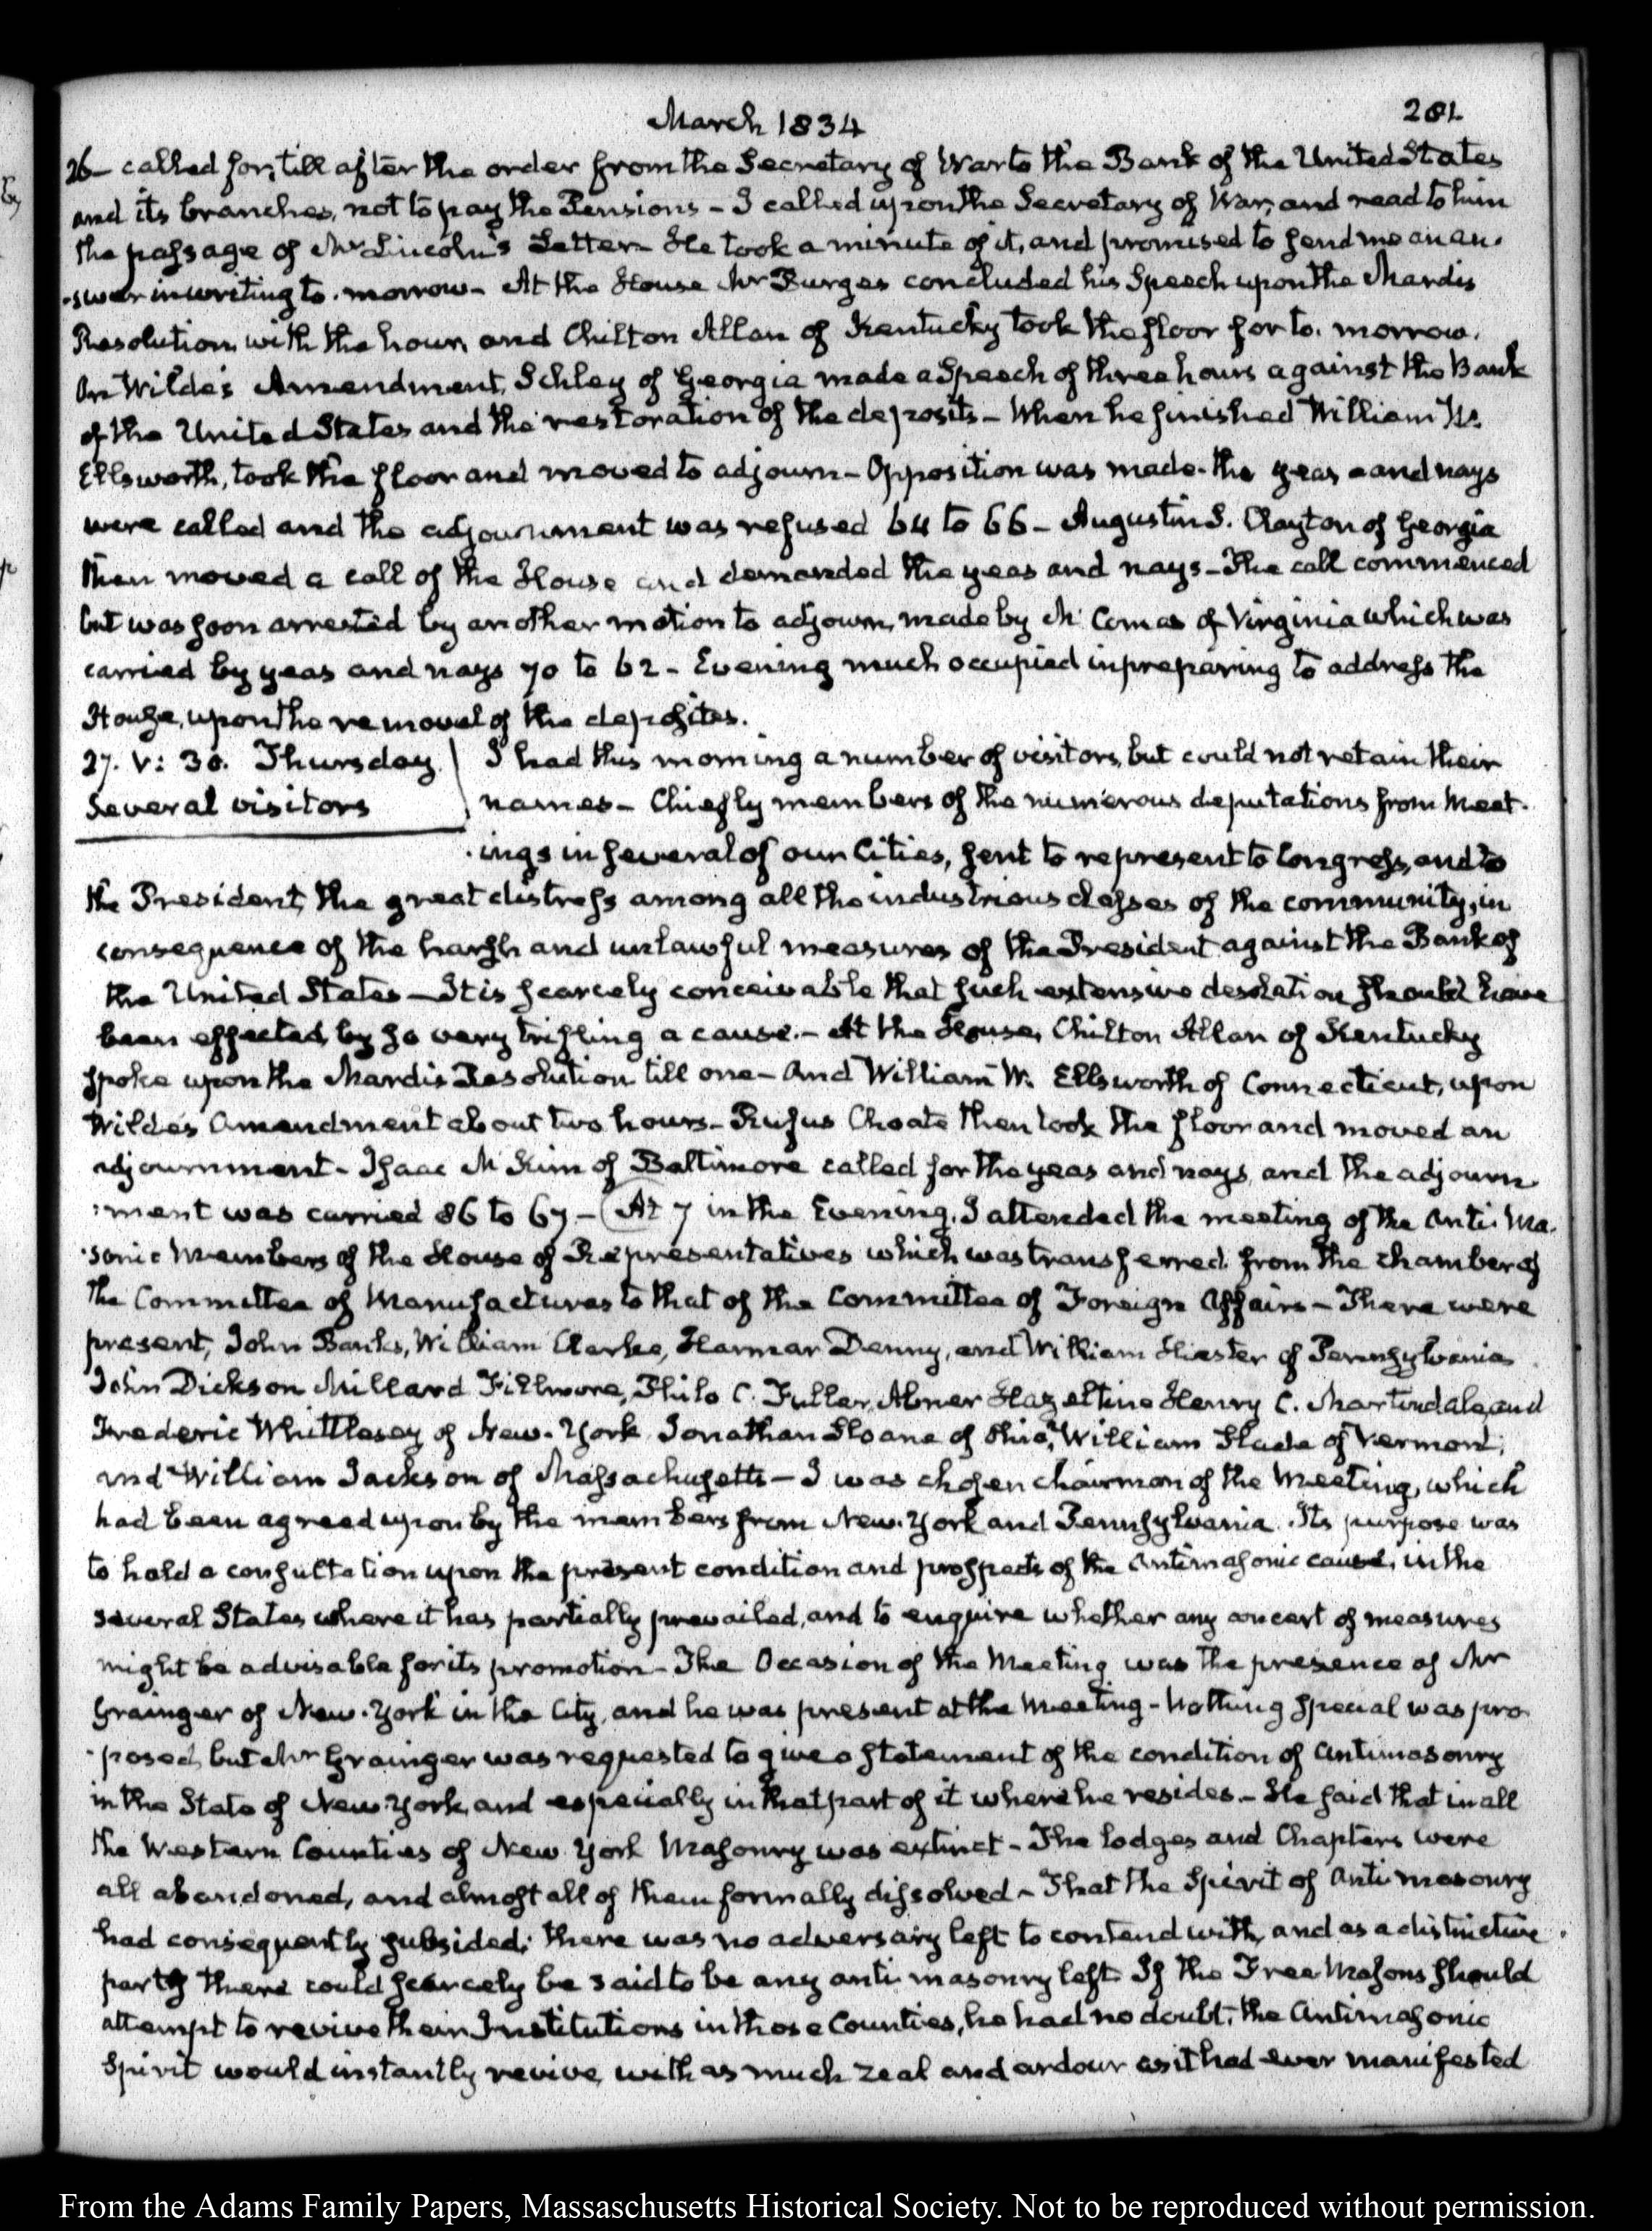 March 1834
281
26— called for, till after the order from the Secretary of War to the Bank of the United States
and its branches, not to pay the Pensions – I called upon the Secretary of War, and read to him
the passage of Mr Lincoln's Letter – He took a minute of it, and promised to send me an an-
-swer in writing to-morrow – At the House Mr Burges concluded his Speech upon the Mardis
Resolution with the hour, and Chilton Allan of Kentucky took the floor for to-morrow.
On Wilde's Amendment, Schley of Georgia made a Speech of three hours against the Bank
of the United States and the restoration of the deposits – When he finished William W.
Ellsworth, took the floor and moved to adjourn – Opposition was made. the yeas and nays
were called and the adjournment was refused 64 to 66 – Augustin S. Clayton of Georgia
then moved a call of the House and demanded the yeas and nays – The call commenced
but was soon arrested by another motion to adjourn, made by McComas of Virginia which was
carried by yeas and nays 70 to 62 – Evening much occupied in preparing to address the
House, upon the removal of the deposites.
27. V: 30. Thursday.
Several visitors
I had this morning a number of visitors, but could not retain their
names – Chiefly members of the numerous deputations from meet-
-ings in several of our Cities, sent to represent to Congress, and to
the President, the great distress among all the industrious classes of the community, in
consequence of the harsh and unlawful measures of the President against the Bank of
the United States – It is scarcely conceivable that such extensive desolation should have
been effected, by so very trifling a cause. – At the House, Chilton Allan of Kentucky
spoke upon the Mardis Resolution till one – And William W. Ellsworth of Connecticut, upon
Wilde's Amendment about two hours – Rufus Choate then took the floor and moved an
adjournment – Isaac McKim of Baltimore called for the yeas and nays, and the adjourn-
-ment was carried 86 to 67 – (At 7 in the Evening, I attended the meeting of the Anti-Ma-
-sonic Members of the House of Representatives which was transferred from the chamber of
the Committee of Manufactures to that of the Committee of Foreign Affairs – There were
present, John Banks, William Clarke, Harmar Denny, and William Hiester of Pennsylvania
John Dickson Millard Fillmore, Philo C. Fuller, Abner Hazeltine Henry C. Martindale, and
Frederic Whittlesey of New-York, Jonathan Sloane of Ohio, William Slade of Vermont,
and William Jackson of Massachusetts – I was chosen chairman of the Meeting, which
had been agreed upon by the members from New-York and Pennsylvania. Its purpose was
to hold a consultation upon the present condition and prospects of the Antimasonic cause, in the
several States where it has partially prevailed, and to enquire whether any concert of measures
might be advisable for its promotion – The Occasion of the Meeting was the presence of Mr
Grainger of New-York in the City, and he was present at the meeting – Nothing special was pro-
-posed, but Mr Grainger was requested to give a statement of the condition of Antimasonry
in the State of New-York, and especially in that part of it where he resides. – He said that in all
the Western Counties of New York Masonry was extinct – The lodges and Chapters were
all abandoned, and almost all of them formally dissolved – That the Spirit of Anti-masonry
had consequently subsided; there was no adversary left to contend with, and as a distinctive
party there could scarcely be said to be any anti-masonry left. If the Free Masons should
attempt to revive their Institutions in those Counties, he had no doubt, the Antimasonic
Spirit would instantly revive, with as much zeal and ardour as it had ever manifested
From the Adams Family Papers, Massachusetts Historical Society. Not to be reproduced without permission.